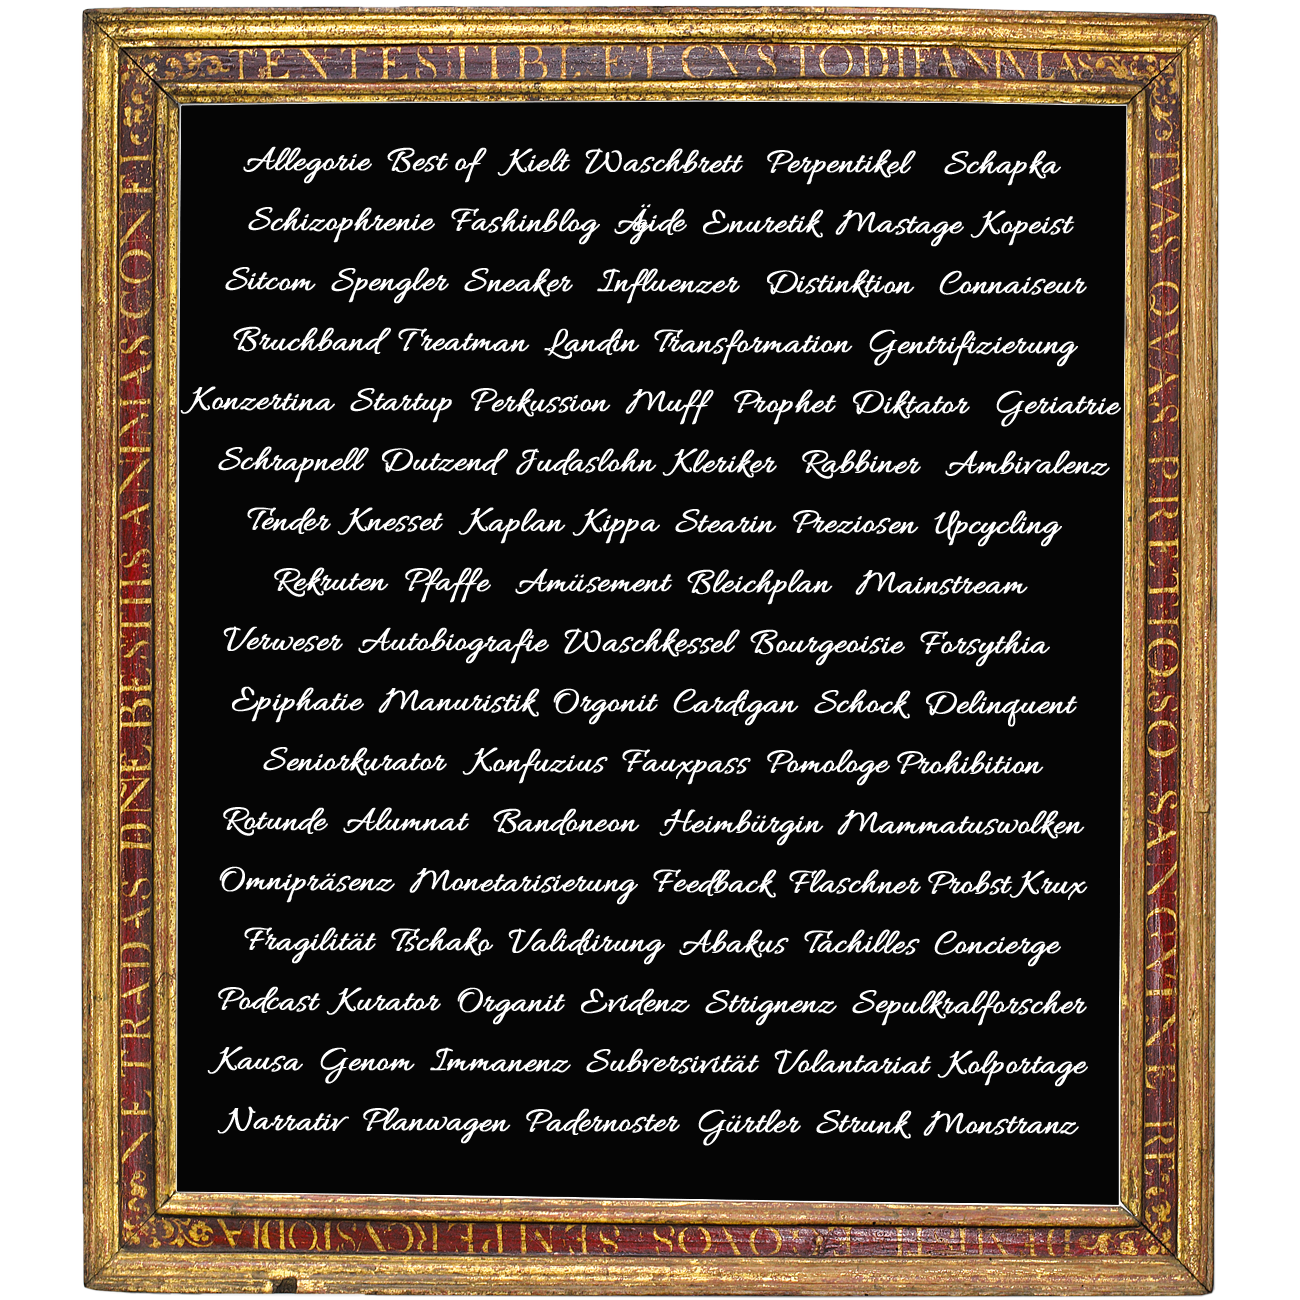 TENTESTIBI ET CVSTODIFANIVLAS
Allegorie Best of Kielt Waschbrett Perpentikel Schapka
Schizophrenie Fashinblog Ägide Enuretik Mastage Kopeist
Sitcom Spengler Sneaker Influenzer Distinktion Connaiseur
Bruchband Treatman Landin Transformation Gentrifizierung
Konzertina Startup Perkussion Muff Prophet Diktator Geriatrie
Schrapnell Dutzend Judaslohn Kleriker Rabbiner Ambivalenz
Tender Knesset Kaplan Kippa Stearin Preziosen Upcycling
Rekruten Pfaffe Amüsement Bleichplan Mainstream
Verweser Autobiografie Waschkessel Bourgeoisie Forsythia
Epiphatie Manuristik Orgonit Cardigan Schock Delinquent
Seniorkurator Konfuzius Fauxpass Pomologe Prohibition
Rotunde Alumnat Bandoneon Heimbürgin Mammatuswolken
Omnipräsenz Monetarisierung Feedback Flaschner Probst Krux
Fragilität Tschako Validiirung Abakus Tachilles Concierge
Podcast Kurator Organit Evidenz Strignenz Sepulkralforscher
Kausa Genom Immanenz Subversivität Volantariat Kolportage
Narrativ Planwagen Padernoster Gürtler Strunk Monstranz
IVAS QVAS PRETIOSO SANGVINE RE
NE TRADAS DNE BESTIIS ANIMAS CONFI